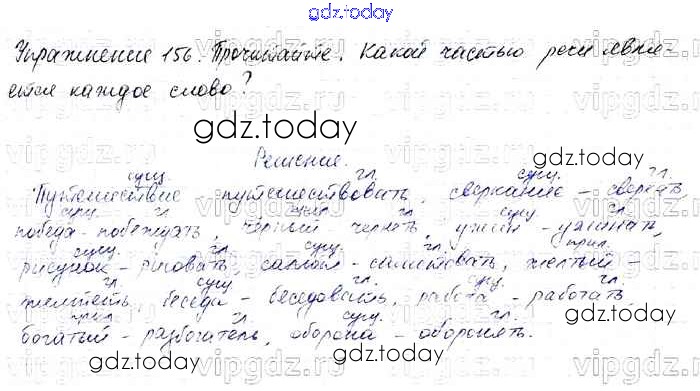 gdz.today
Упражнение 156. Прочитайте. Какой частью речи явля-
ется каждое слово?
gdz.today gdz.today
Решение.
сущ. гл. сущ. гл.
Путешествие - путешествовать, сверкание - сверкать
сущ. гл. прил. гл. сущ. гл.
победа - побеждать, чёрный - чернеть, ужин - ужинать,
сущ. гл. сущ. гл. прил.
рисунок - рисовать, салют - салютовать, жёлтый -
гл. сущ. гл. сущ. гл.
желтеть, беседа - беседовать, работа - работать,
прил. гл. сущ. гл.
богатый - разбогатель, оборона - оборонять.
gdz.today gdz.today